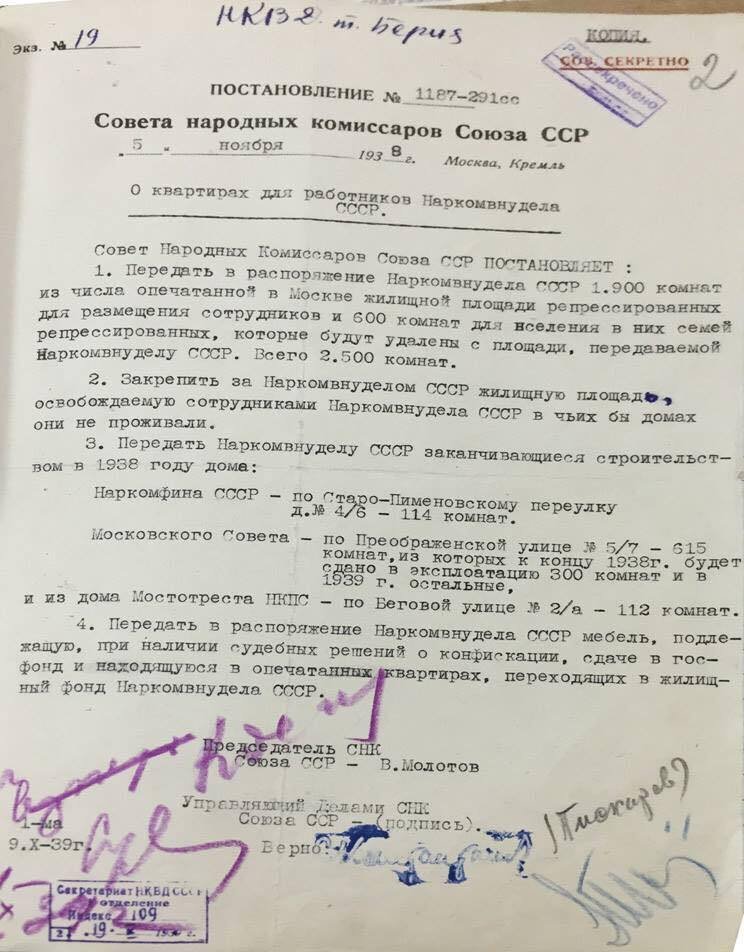 НКВД т. Берия
Экз. № 19
КОПИЯ.
СОВ. СЕКРЕТНО
2
Рассекречено
ПОСТАНОВЛЕНИЕ № 1187-291сс
Совета народных комиссаров Союза ССР
„ 5 „ ноября 1938 г. Москва, Кремль
О квартирах для работников Наркомвнудела
СССР.
Совет Народных Комиссаров Союза ССР ПОСТАНОВЛЯЕТ :
1. Передать в распоряжение Наркомвнудела СССР 1.900 комнат
из числа опечатанной в Москве жилищной площади репрессированных
для размещения сотрудников и 600 комнат для вселения в них семей
репрессированных, которые будут удалены с площади, передаваемой
Наркомвнуделу СССР. Всего 2.500 комнат.
2. Закрепить за Наркомвнуделом СССР жилищную площадь,
освобождаемую сотрудниками Наркомвнудела СССР в чьих бы домах
они не проживали.
3. Передать Наркомвнуделу СССР заканчивающиеся строительст-
вом в 1938 году дома:
Наркомфина СССР - по Старо-Пименовскому переулку
д.№ 4/6 - 114 комнат.
Московского Совета - по Преображенской улице № 5/7 - 615
комнат, из которых к концу 1938г. будет
сдано в эксплоатацию 300 комнат и в
1939 г. остальные,
и из дома Мостотреста НКПС - по Беговой улице № 2/а - 112 комнат.
4. Передать в распоряжение Наркомвнудела СССР мебель, подле-
жащую, при наличии судебных решений о конфискации, сдаче в гос-
фонд и находящуюся в опечатанных квартирах, переходящих в жилищ-
ный фонд Наркомвнудела СССР.
Председатель СНК
Союза ССР - В.Молотов
Управляющий Делами СНК
Союза ССР - (подпись).
1-ма
9.X-39г.
Верно:
Секретариат НКВД СССР
отделение
Индекс 109
19